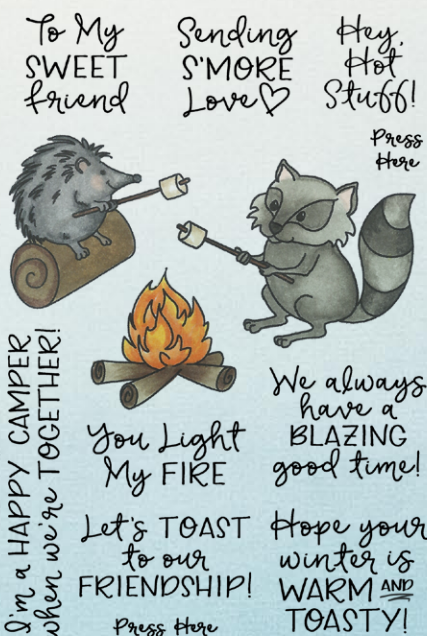 To My
SWEET
friend
Sending
S'MORE
Love
Hey,
Hot
Stuff!
Press
Here
I'm a HAPPY CAMPER
when we're TOGETHER!
You Light
My FIRE
We always
have a
BLAZING
good time!
Let's TOAST
to our
FRIENDSHIP!
Press Here
Hope your
winter is
WARM AND
TOASTY!